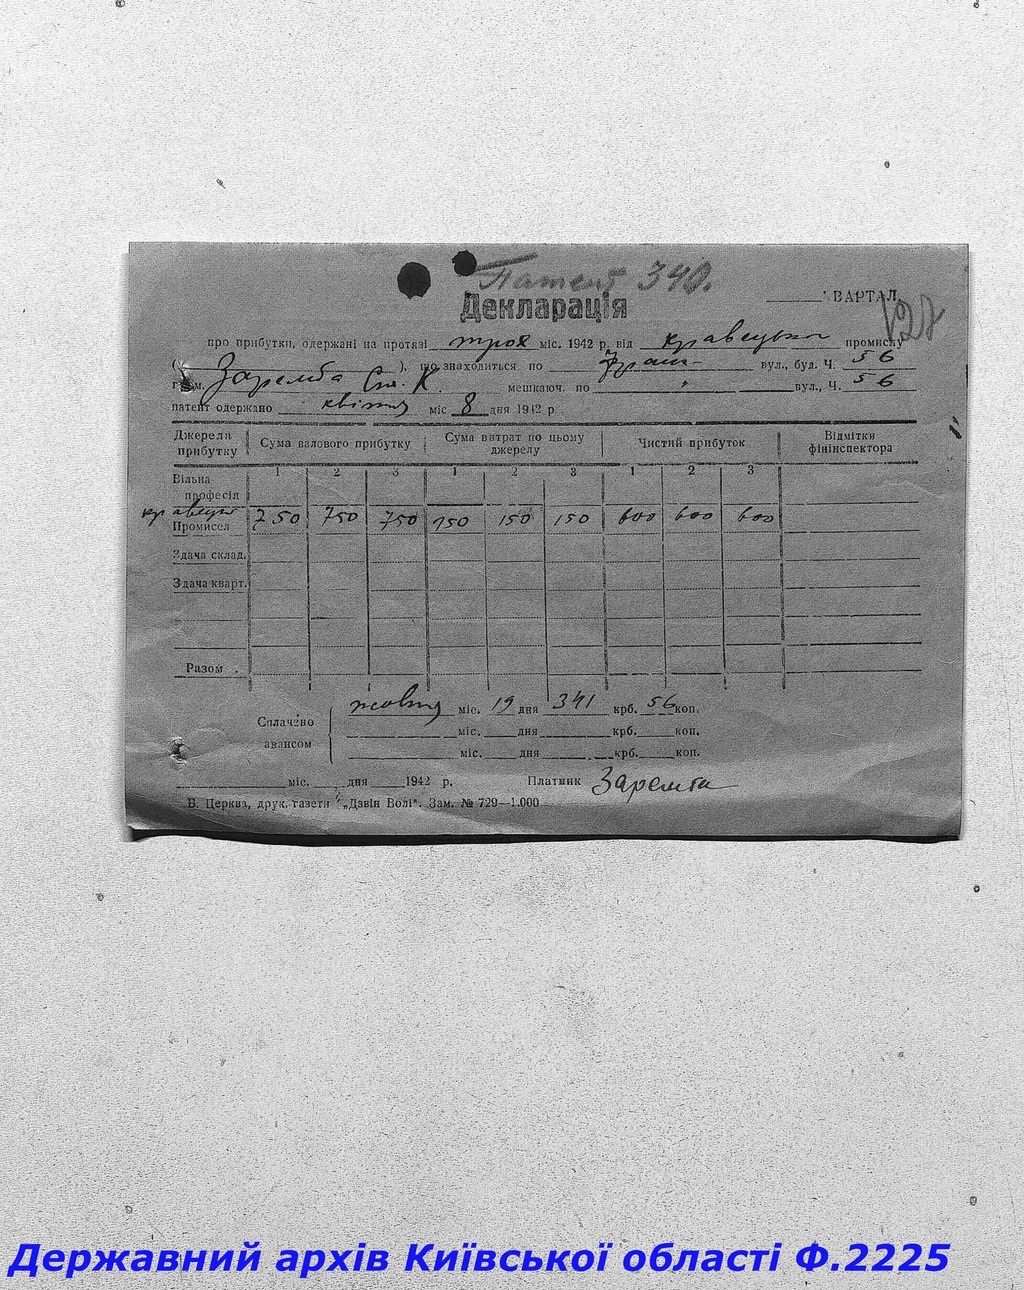 Патент 340.
Декларація
КВАРТАЛ
128
про прибутки, одержані на протязі трох міс. 1942 р. від кравецько промислу
( ), що знаходиться по Фран- вул., буд. Ч. 56
гр-м. Заремба Ст. К. мешкаюч. по " вул., Ч. 56
патент одержано квітня міс 8 дня 1942 р
Джерела прибутку Сума валового прибутку Сума витрат по цьому джерелу Чистий прибуток Відмітки фінінспектора
1 2 3 1 2 3 1 2 3
Вільна професія
кравецьк
Промисел 750 750 750 150 150 150 600 600 600
Здача склад.
Здача кварт.
Разом .
Сплачено авансом
жовтня міс. 19 дня 341 крб. 56 коп.
міс. дня крб. коп.
міс. дня крб. коп.
міс. дня 1942 р. Платник Заремба
Б. Церква, друк. газети „Дзвін Волі". Зам. № 729—1.000
Державний архів Київської області Ф.2225